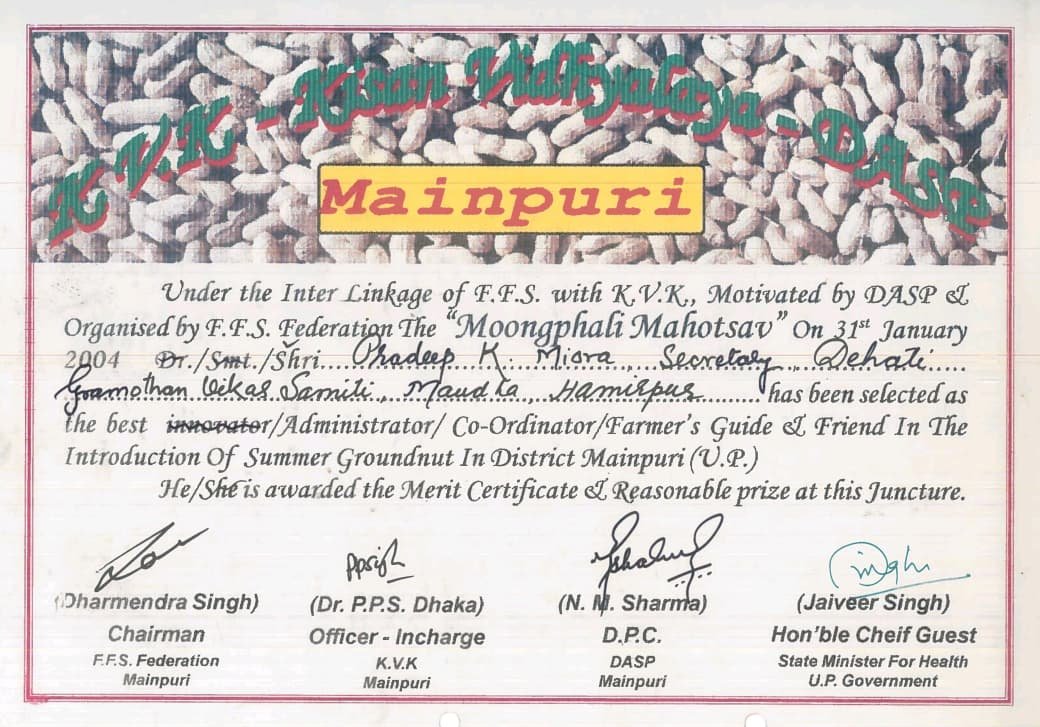 K.V.K - Kisan Vidhyalaya - DASP
Mainpuri
Under the Inter Linkage of F.F.S. with K.V.K., Motivated by DASP &
Organised by F.F.S. Federation The "Moongphali Mahotsav" On 31st January
2004 Dr./Smt./Shri Pradeep K. Misra, Secretary Dehati
Gramothan Vikas Samiti, Maudha, Hamirpur has been selected as
the best innovator/Administrator/ Co-Ordinator/Farmer's Guide & Friend In The
Introduction Of Summer Groundnut In District Mainpuri (U.P.)
He/She is awarded the Merit Certificate & Reasonable prize at this Juncture.
(Dharmendra Singh) (Dr. P.P.S. Dhaka) (N. M. Sharma) (Jaiveer Singh)
Chairman Officer - Incharge D.P.C. Hon'ble Cheif Guest
F.F.S. Federation K.V.K DASP State Minister For Health
Mainpuri Mainpuri Mainpuri U.P. Government